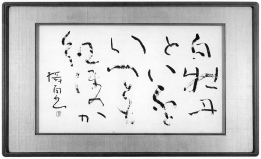 白牡丹
といふと
いへども
紅ほのか